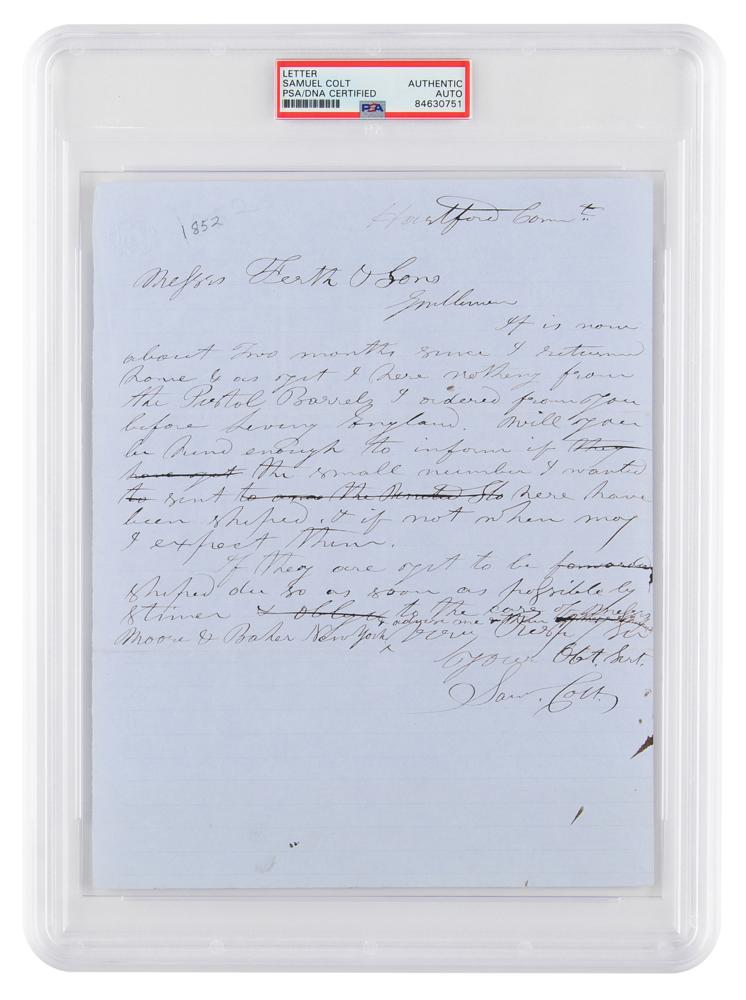 LETTER
SAMUEL COLT AUTHENTIC
PSA/DNA CERTIFIED AUTO
PSA 84630751
1852
Hartford Connt
Messrs Ferth & Sons
Gentlemen
It is now
about two months since I returned
home & as yet I here nothing from
the Pistol Barrels I ordered from you
before leving England. Will you
be kind enough to inform if they
have yet the small number I wanted
to sent to the United Sts here have
been shiped, & if not when may
I expect them.
If they are yet to be forwarded
shiped du so as soon as possiblely
stimer & oblige to the care of Messrs
Moore & Baker New York & advise me Very Resp
Your Obt. Sert.
Sam. Colt.